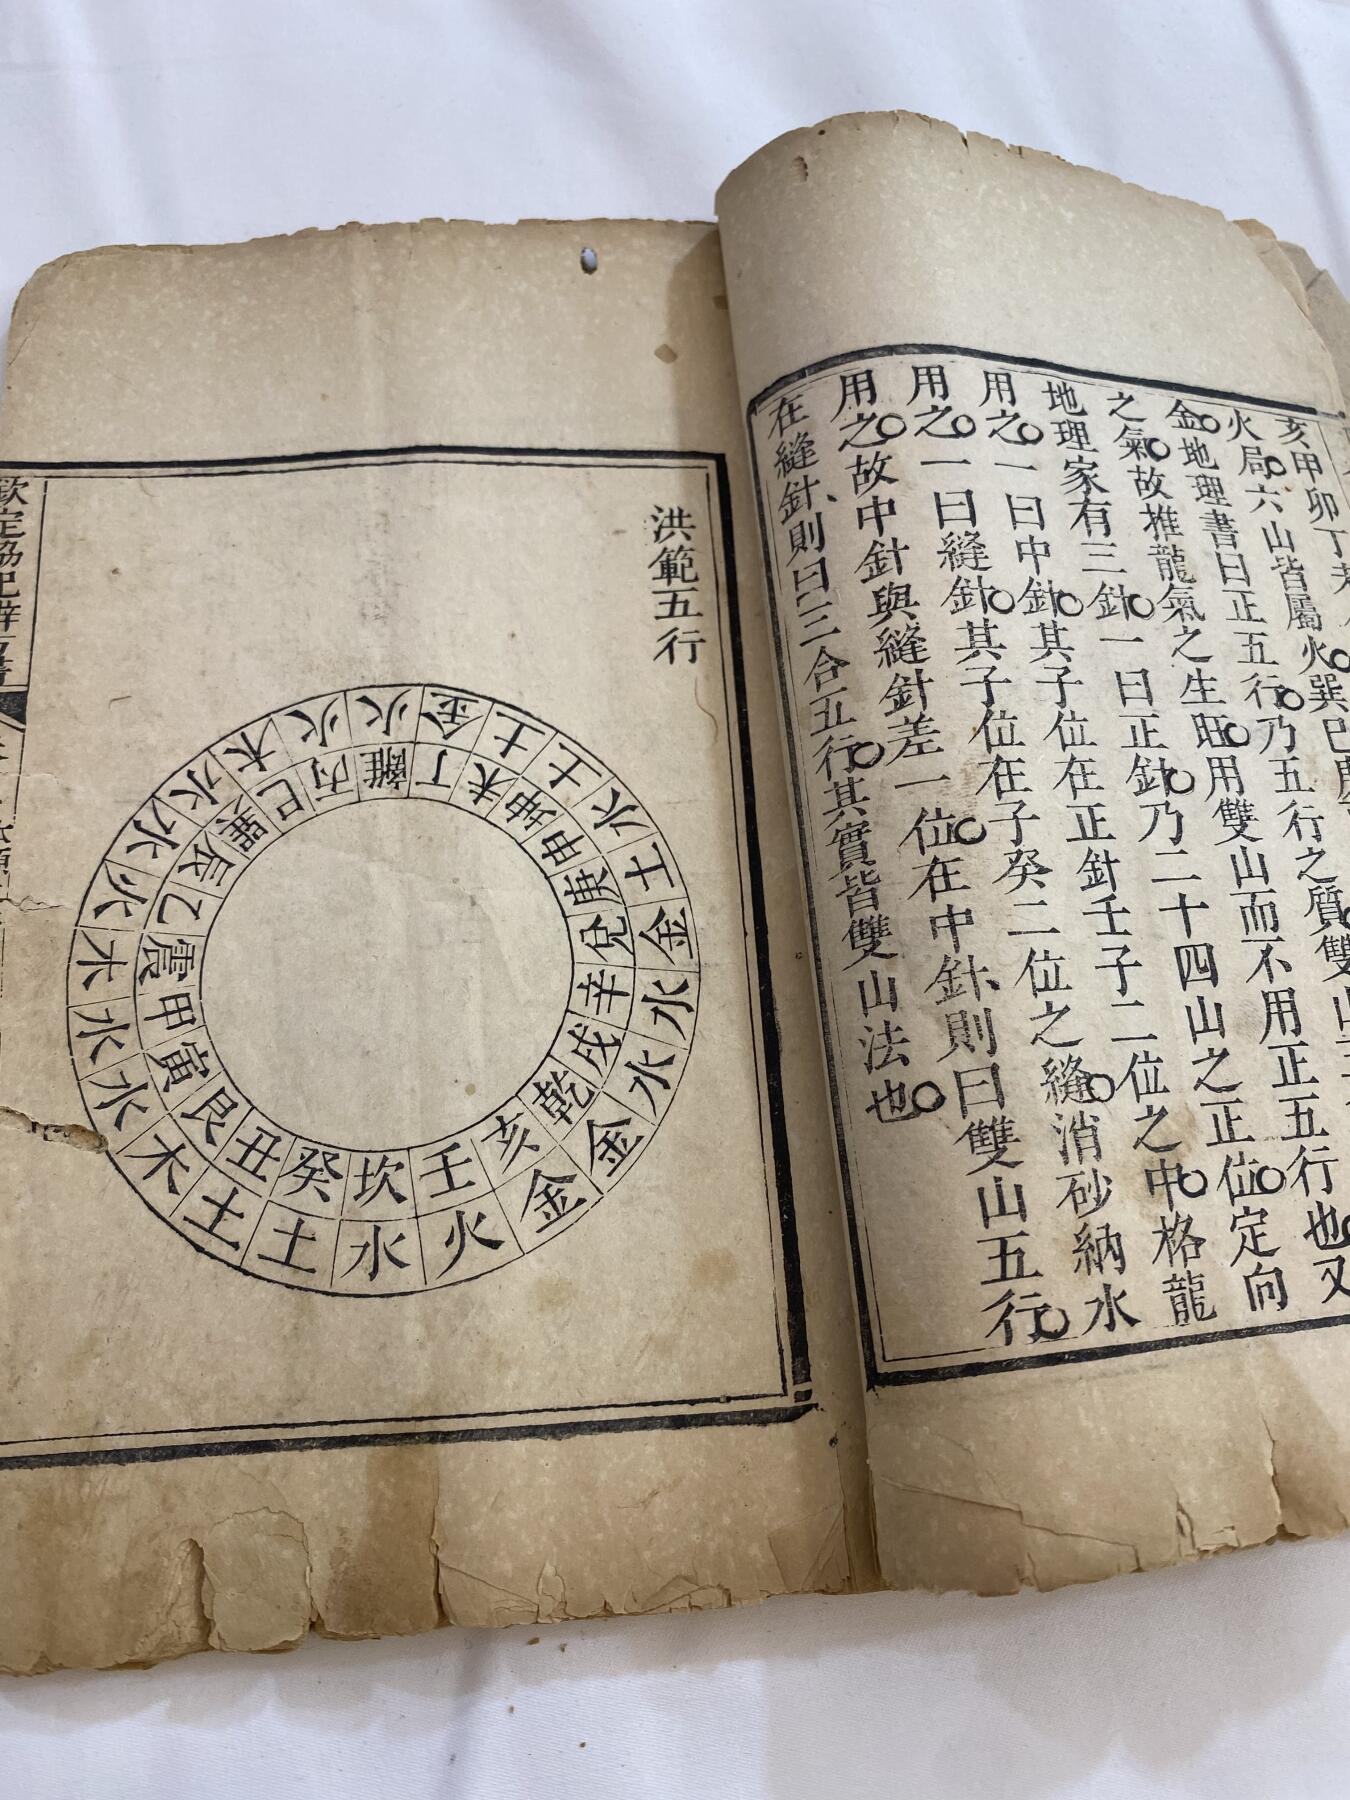 亥甲卯丁
火局六山皆屬火巽巳
金地理書曰正五行乃五行之質雙山
之氣故推龍氣之生旺用雙山而不用正五行也又
地理家有三針一曰正針乃二十四山之正位定向
用之一曰中針其子位在正針壬子二位之中格龍
用之一曰縫針其子位在子癸二位之縫消砂納水
用之故中針與縫針差一位在中針則曰雙山五行
在縫針則曰三合五行其實皆雙山法也
洪範五行
火 火 金 土 土 土 水 土 金 水 水 金 金 火 水 土 土 木 水 水 木 火 水 水 木
丙 離 丁 未 坤 申 庚 兌 辛 戌 乾 亥 壬 坎 癸 丑 艮 寅 甲 震 乙 辰 巽 巳
欽定協紀辨方書